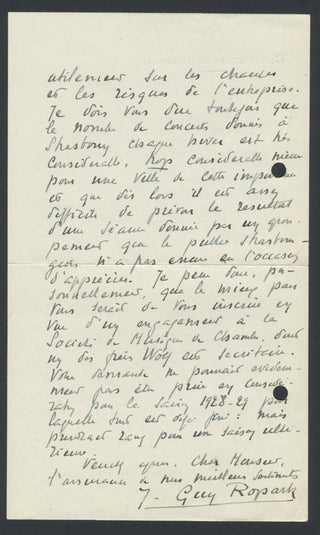 utilement sur les chances
et les risques de l'entreprise.
Je dois vous dire toutefois que
le nombre de concerts donnés à
Strasbourg chaque hiver est très
considérable, trop considérable même
pour une ville de cette importance
et que dès lors il est assez
difficile de prévoir le résultat
d'une séance donnée par un grou-
pement que le public strasbour-
geois n'a pas encore eu l'occasion
d'apprécier. Je peux donc, per-
sonnellement, que le mieux pour
vous serait de vous inscrire en
vue d'un engagement à la
Société de Musique de Chambre, dont
un des frères Wolf est secrétaire.
Votre demande ne pourrait évidem-
ment pas être prise en considé-
ration pour la saison 1928-29 pour
laquelle tout est déjà fini : mais
prendrait rang pour une saison ulté-
rieure.
Veuillez agréer, cher Monsieur,
l'assurance de mes meilleurs sentiments
J. Guy Ropartz